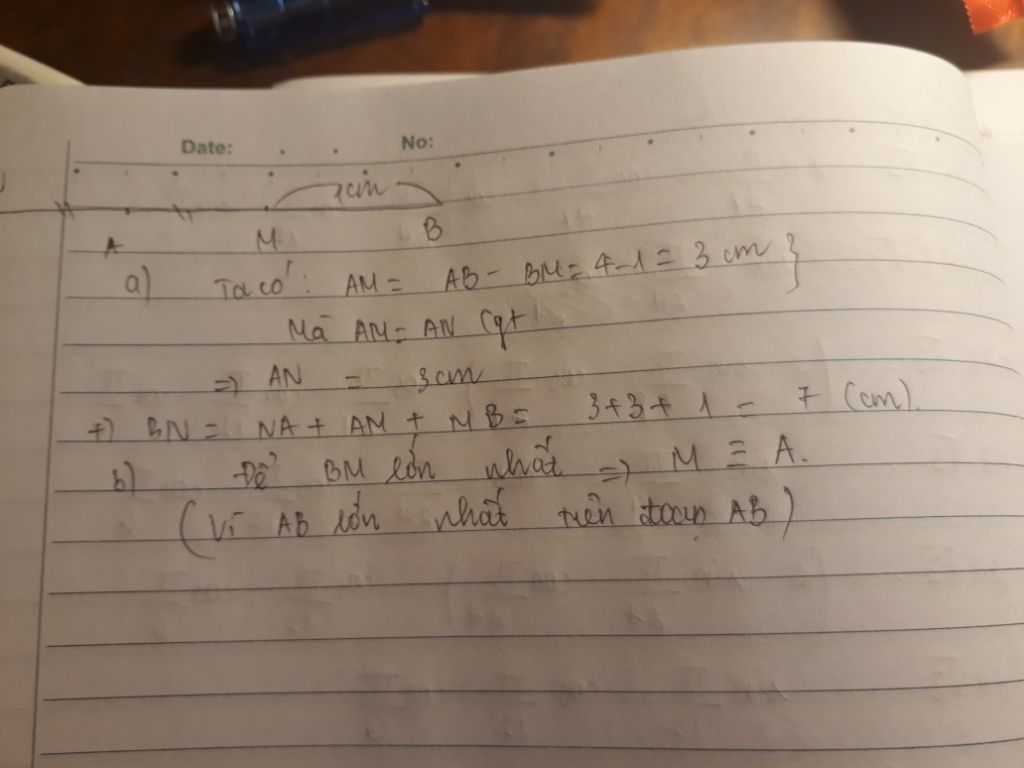 Date: No:
1cm
A M B
a) Ta có: AM = AB - BM = 4-1 = 3 cm }
Mà AM = AN (gt
=> AN = 3cm
+) BN = NA + AM + MB = 3+3+1 = 7 (cm).
b) Để BM lớn nhất => M ≡ A.
(Vì AB lớn nhất trên đoạn AB)